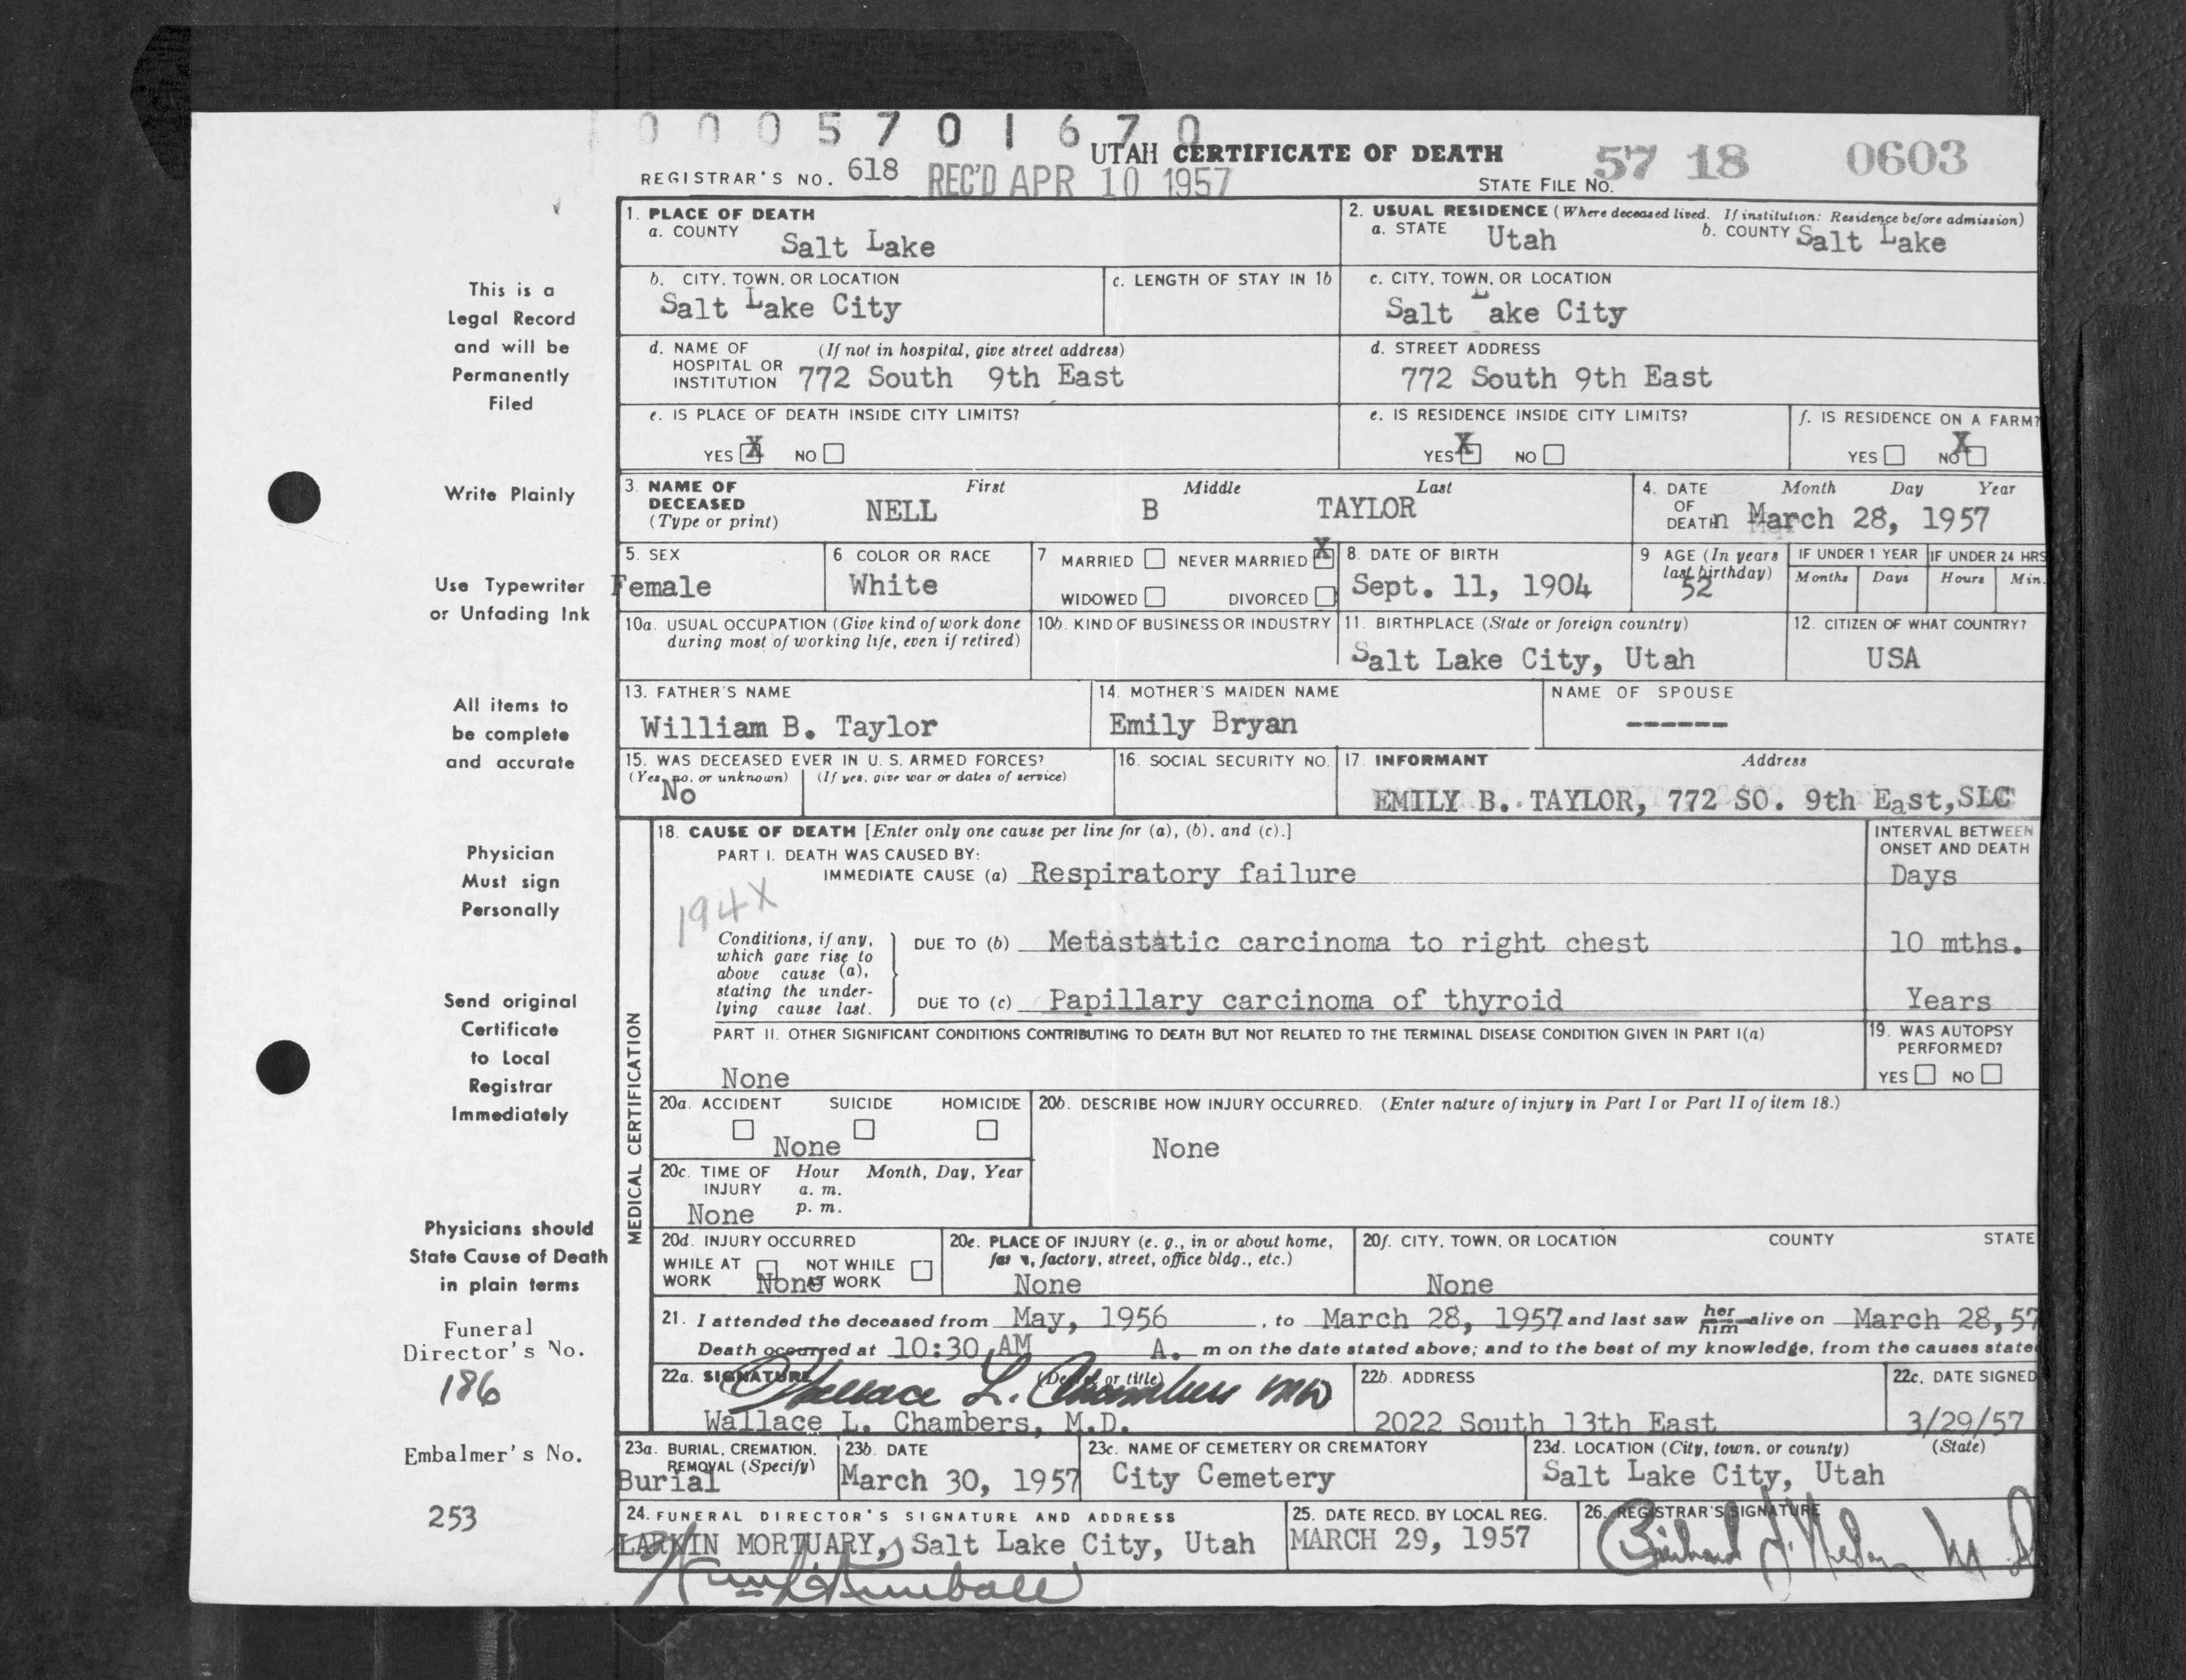 0 0 0 5 7 0 1 6 7 0
UTAH CERTIFICATE OF DEATH
REGISTRAR'S NO. 618 REC'D APR 10 1957
STATE FILE NO. 57 18 0603
1. PLACE OF DEATH
a. COUNTY
Salt Lake
2. USUAL RESIDENCE (Where deceased lived. If institution: Residence before admission)
a. STATE Utah b. COUNTY Salt Lake
b. CITY, TOWN, OR LOCATION
Salt Lake City
c. LENGTH OF STAY IN 1b
c. CITY, TOWN, OR LOCATION
Salt Lake City
d. NAME OF (If not in hospital, give street address)
HOSPITAL OR
INSTITUTION 772 South 9th East
d. STREET ADDRESS
772 South 9th East
e. IS PLACE OF DEATH INSIDE CITY LIMITS?
YES X NO
e. IS RESIDENCE INSIDE CITY LIMITS?
YES X NO
f. IS RESIDENCE ON A FARM?
YES NO X
3. NAME OF DECEASED (Type or print)
First Middle Last
NELL B TAYLOR
4. DATE OF DEATH Month Day Year
March 28, 1957
5. SEX
Female
6 COLOR OR RACE
White
7 MARRIED NEVER MARRIED X
WIDOWED DIVORCED
8. DATE OF BIRTH
Sept. 11, 1904
9 AGE (In years last birthday)
52
IF UNDER 1 YEAR
Months Days
IF UNDER 24 HRS
Hours Min.
10a. USUAL OCCUPATION (Give kind of work done
during most of working life, even if retired)
10b. KIND OF BUSINESS OR INDUSTRY
11. BIRTHPLACE (State or foreign country)
Salt Lake City, Utah
12. CITIZEN OF WHAT COUNTRY?
USA
13. FATHER'S NAME
William B. Taylor
14. MOTHER'S MAIDEN NAME
Emily Bryan
NAME OF SPOUSE
------
15. WAS DECEASED EVER IN U. S. ARMED FORCES?
(Yes, no, or unknown) (If yes, give war or dates of service)
No
16. SOCIAL SECURITY NO.
17 INFORMANT Address
EMILY B. TAYLOR, 772 SO. 9th East, SLC
MEDICAL CERTIFICATION
18. CAUSE OF DEATH [Enter only one cause per line for (a), (b), and (c).]
INTERVAL BETWEEN
ONSET AND DEATH
PART I. DEATH WAS CAUSED BY:
IMMEDIATE CAUSE (a) Respiratory failure Days
194X
Conditions, if any,
which gave rise to
above cause (a),
stating the under-
lying cause last.
DUE TO (b) Metastatic carcinoma to right chest 10 mths.
DUE TO (c) Papillary carcinoma of thyroid Years
PART II. OTHER SIGNIFICANT CONDITIONS CONTRIBUTING TO DEATH BUT NOT RELATED TO THE TERMINAL DISEASE CONDITION GIVEN IN PART I(a)
None
19. WAS AUTOPSY
PERFORMED?
YES NO
20a. ACCIDENT SUICIDE HOMICIDE
None
20b. DESCRIBE HOW INJURY OCCURRED. (Enter nature of injury in Part I or Part II of item 18.)
None
20c. TIME OF INJURY Hour Month, Day, Year
a. m.
p. m.
None
20d. INJURY OCCURRED
WHILE AT WORK NOT WHILE AT WORK
None
20e. PLACE OF INJURY (e. g., in or about home,
farm, factory, street, office bldg., etc.)
None
20f. CITY, TOWN, OR LOCATION COUNTY STATE
None
21. I attended the deceased from May, 1956, to March 28, 1957 and last saw her him alive on March 28, 57
Death occurred at 10:30 AM A. m on the date stated above; and to the best of my knowledge, from the causes state
22a. SIGNATURE (Degree or title)
Wallace L. Chambers MD
Wallace L. Chambers, M.D.
22b. ADDRESS
2022 South 13th East
22c. DATE SIGNED
3/29/57
23a. BURIAL, CREMATION,
REMOVAL (Specify)
Burial
23b. DATE
March 30, 1957
23c. NAME OF CEMETERY OR CREMATORY
City Cemetery
23d. LOCATION (City, town, or county) (State)
Salt Lake City, Utah
24. FUNERAL DIRECTOR'S SIGNATURE AND ADDRESS
LARKIN MORTUARY, Salt Lake City, Utah
25. DATE RECD. BY LOCAL REG.
MARCH 29, 1957
26. REGISTRAR'S SIGNATURE
This is a
Legal Record
and will be
Permanently
Filed
Write Plainly
Use Typewriter
or Unfading Ink
All items to
be complete
and accurate
Physician
Must sign
Personally
Send original
Certificate
to Local
Registrar
Immediately
Physicians should
State Cause of Death
in plain terms
Funeral
Director's No.
186
Embalmer's No.
253